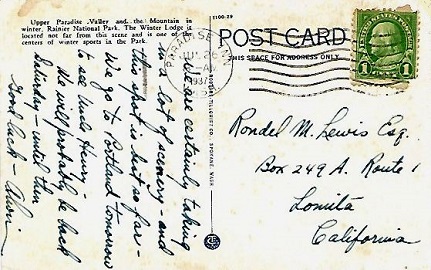 Upper Paradise Valley and the Mountain in
winter, Rainier National Park. The Winter Lodge is
located not far from this scene and is one of the
centers of winter sports in the Park.
1100-29
POST CARD
THIS SPACE FOR ADDRESS ONLY
PARADISE INN
1937
WASH.
UNITED STATES POSTAGE
1 CENT 1
We are certainly taking
in a lot of scenery - and
this spot is best so far -
We go to Portland tomorrow
to see Uncle Henry -
We will probably be back
Saturday - until then
Good luck -
Rondel M. Lewis Esq.
Box 249 A. Route 1
Lomita
California